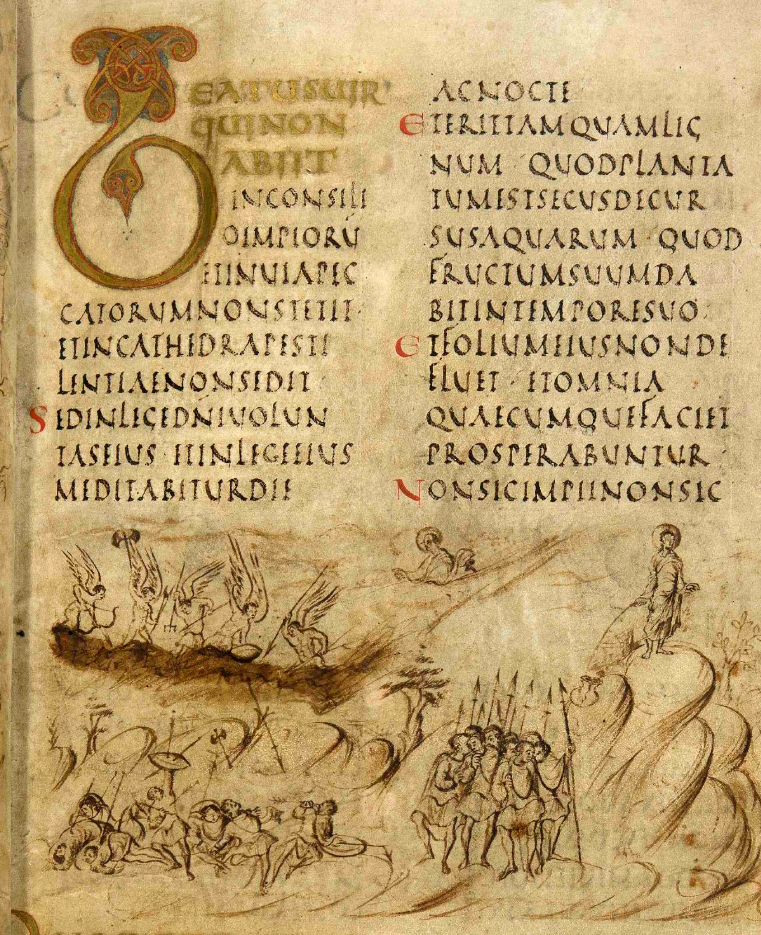 BEATUSUIR
QUINON
ABIIT
INCONSILI
OIMPIORŪ
ETINUIAPEC
CATORUMNONSTETIT·
ETINCATHEDRAPESTI
LENTIAENONSEDIT·
SEDINLEGEDNIUOLUN
TASEIUS·ETINLEGEEIUS
MEDITABITURDIE
ACNOCTE
ETERITTAMQUAMLIG
NUM·QUODPLANTA
TUMESTSECUSDECUR
SUSAQUARUM·QUOD
FRUCTUMSUUMDA
BITINTEMPORESUO·
ETFOLIUMEIUSNONDE
FLUET·ETOMNIA
QUAECUMQUEFACIET
PROSPERABUNTUR·
NONSICIMPIINONSIC